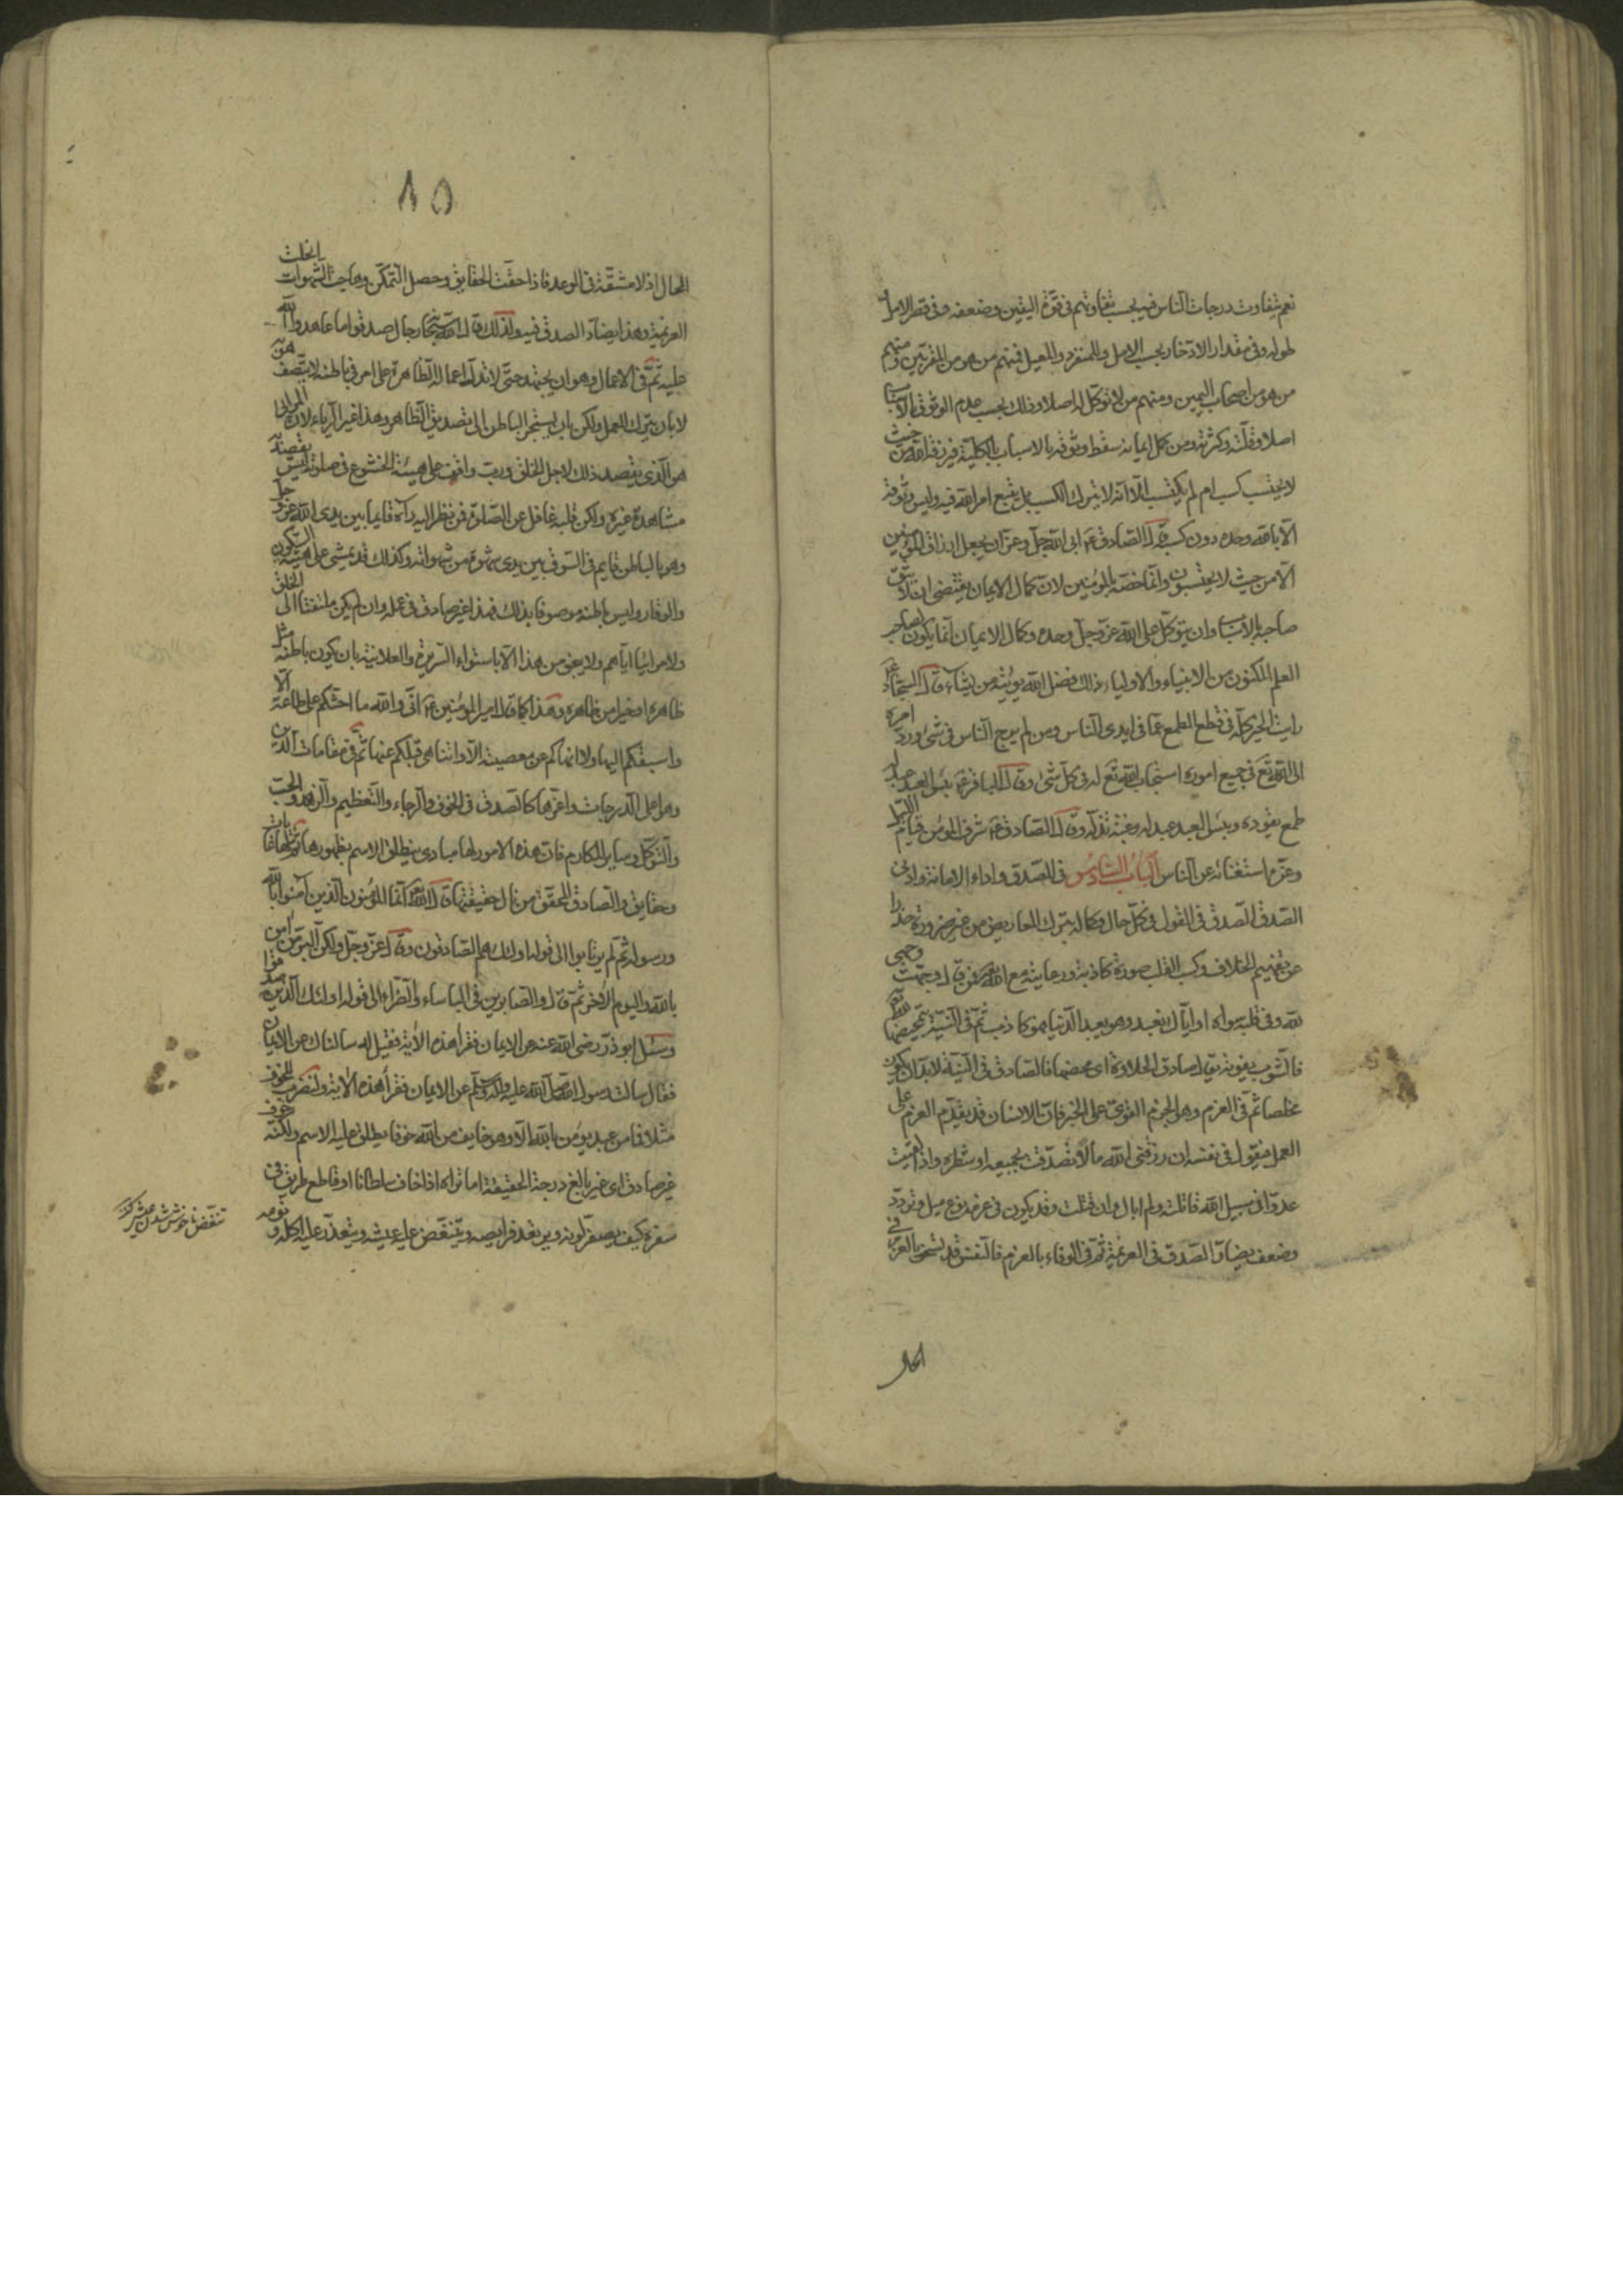 نعم يتفاوت درجات الناس فيه بحسب تفاوتهم فى قوة اليقين وضعفه وفى قصر الامل و
طوله وفى مقدار الادخار بحسب الامل والمنفرد والمعيل فمنهم من هو من المقربين ومنهم
من هو من اصحاب اليمين ومنهم من لا توكل له اصلا وذلك بحسب عدم الوثوق بالاسباب
اصلا وقلته وكثرته ومن كمل ايمانه سقط وثوقه بالاسباب بالكلية فيرزقه الله من حيث
لا يحتسب كسب ام لم يكتسب الا انه لا يترك الكسب بل يتبع امر الله فيه وليس وثوقه
الا بالله وحده دون كسبه قال الصادق ع ابى الله جل وعز ان يجعل ارزاق المؤمنين
الا من حيث لا يحتسبون وانما خصه بالمؤمنين لان كمال الايمان يقتضى ان لا يثق
صاحبه بالاسباب وان يتوكل على الله عز وجل وحده وكمال الايمان انما يكون لصاحب
العلم المكنون من الانبياء والاولياء ذلك فضل الله يؤتيه من يشاء قال السجاد ع
رايت الخير كله فى قطع الطمع عما فى ايدى الناس ومن لم يرج الناس فى شئ ورد امره
الى الله تع فى جميع اموره استجاب الله تع له فى كل شئ وقال الباقر ع بئس العبد عبد له
طمع يقوده وبئس العبد عبد له رغبة تذله وقال الصادق ع شرف المؤمن قيام الليل
وعزه استغناؤه عن الناس الباب السادس فى الصدق واداء الامانة وادنى
الصدق الصدق فى القول فى كل حال وكماله بترك المعاريض من غير ضرورة حذرا
عن تفهيم الخلاف وكسب القلب صورة كاذبة ورعايته مع الله فمن قال وجهت وجهى
لله وفى قلبه سواه او اياك نعبد وهو يعبد الدنيا فهو كاذب ثم فى النية بتمحيضها لله
فالشوب يفوته يقال صادق الحلاوة اى محضها فالصادق فى النية لابد ان يكون
مخلصا ثم فى العزم وهو الجزم القوى على الخير فان الانسان قد يقدم العزم على
العمل فيقول فى نفسه ان رزقنى الله مالا تصدقت بجميعه او شطره واذا لقيت
عدوا فى سبيل الله قاتلت ولم ابال وان قتلت وقد يكون فى عزمه نوع ميل وتردد
وضعف يضاد الصدق فى العزيمة ثم فى الوفاء بالعزم فالنفس قد تسخو بالعزم فى
الحال
٨٥
الحال اذ لا مشقة فى الوعد فاذا حقت الحقايق وحصل التمكن وهاجت الشهوات انحلت
العزيمة وهذا يضاد الصدق فيه ولذلك قال الله سبحانه رجال صدقوا ما عاهدوا الله
عليه ثم فى الاعمال وهو ان يجتهد حتى لا تدل اعماله الظاهرة على امر فى باطنه لا يتصف هو به
لا بان يترك العمل ولكن بان يستجر الباطن الى تصديق الظاهر وهذا غير الرياء لان المرائى
هو الذى يقصد ذلك لاجل الخلق ورب واقف على هيئة الخشوع فى صلوته ليس يقصد به
مشاهدة غيره ولكن قلبه غافل عن الصلوة فمن نظر اليه رآه قايما بين يدى الله عز و جل
وهو بالباطن قايم فى السوق بين يدى شهوة من شهواته وكذلك قد يمشى على هيئة السكون
والوقار وليس باطنه موصوفا بذلك فهذا غير صادق فى عمله وان لم يكن ملتفتا الى الخلق
ولا مرائيا اياهم ولا ينجو من هذا الا باستواء السريرة والعلانية بان يكون باطنه مثل
ظاهره او خيرا من ظاهره وهذا كما قال امير المؤمنين ع انى والله ما احثكم على طاعة الا
واسبقكم اليها ولا انهاكم عن معصية الا واتناهى قبلكم عنها ثم فى مقامات الدين
وهو اعلى الدرجات واعزها كالصدق فى الخوف والرجاء والتعظيم والزهد والحب
والتوكل وساير المكارم فان هذه الامور لها مبادى ينطلق الاسم بظهورها ثم لها غايات
وحقايق والصادق المحقق من نال حقيقتها قال الله تع انما المؤمنون الذين آمنوا بالله
ورسوله ثم لم يرتابوا الى قوله اولئك هم الصادقون وقال عز وجل ولكن البر من آمن
بالله واليوم الاخر ثم قال والصابرين فى الباساء والضراء الى قوله اولئك الذين صدقوا
وسئل ابو ذر رضى الله عنه عن الايمان فقرأ هذه الآية فقيل له سالناك عن الايمان
فقال سالت رسول الله صلى الله عليه وآله وسلم عن الايمان فقرأ هذه الآية ولنضرب للخوف
مثلا فما من عبد يؤمن بالله الا وهو خايف من الله خوفا ينطلق عليه الاسم ولكنه خوف
غير صادق اى غير بالغ درجة الحقيقة اما تراه اذا خاف سلطانا او قاطع طريق فى
سفره كيف يصفر لونه ويرتعد فرايصه ويتنغص عليه عيشه ويتعذر عليه اكله و نومه
تنغص ناخوش شدن عيش